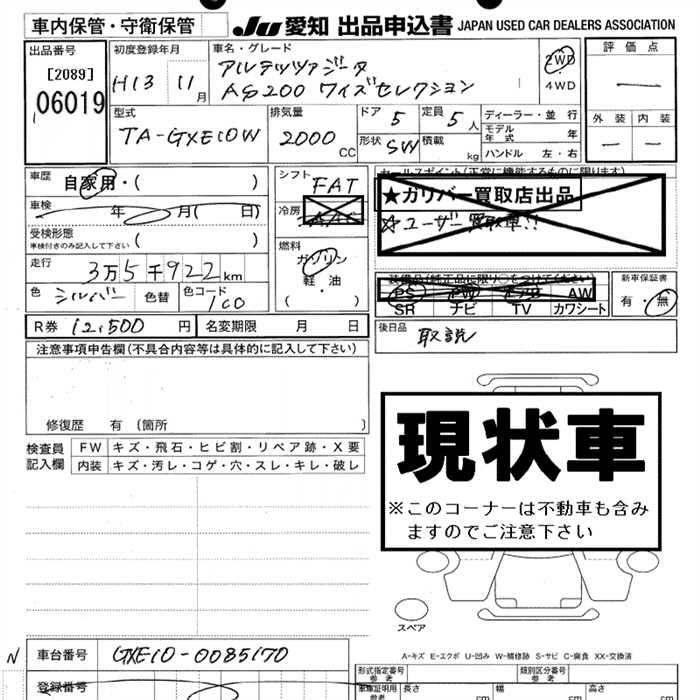 車内保管・守衛保管
JU 愛知 出品申込書 JAPAN USED CAR DEALERS ASSOCIATION
出品番号
[2089]
06019
初度登録年月
H13 11月
車名・グレード
アルテッツァジータ
AS200 ワイズセレクション
2WD
4WD
評価点
一
外装 内装
一 一
型式
TA-GXE10W
排気量
2000 CC
ドア 5
定員 5人
形状 SW
積載 kg
ディーラー・並行
モデル年式 年
ハンドル 左・右
車歴 自家用・( )
車検 年 月( 日)
受検形態
車検付きのみ記入して下さい ( )
走行 3万5千922km
色 シルバー 色替 色コード 1C0
R券 12,500 円 名変期限 月 日
シフト FAT
冷房 AAC
燃料
ガソリン
軽油
( )
セールスポイント(正常に機能するものに限ります)
★ガリバー買取店出品
☆ユーザー買取車!!
装備品(純正品に限り○をつけてください)
PS PW エアB AW
SR ナビ TV カワシート
新車保証書
有・無
後日品 取説
注意事項申告欄(不具合内容等は具体的に記入して下さい)
修復歴 有(箇所 )
検査員記入欄
FW キズ・飛石・ヒビ割・リペア跡・X要
内装 キズ・汚レ・コゲ・穴・スレ・キレ・破レ
現状車
※このコーナーは不動車も含み
ますのでご注意下さい
スペア
A-キズ E-エクボ U-凹み W-補修跡 S-サビ C-腐食 XX-交換済
N 車台番号 GXE10-0085170
登録番号
形式指定番号 参考
類別区分番号 参考
車庫証明用 参考
長さ cm 幅 cm 高さ cm